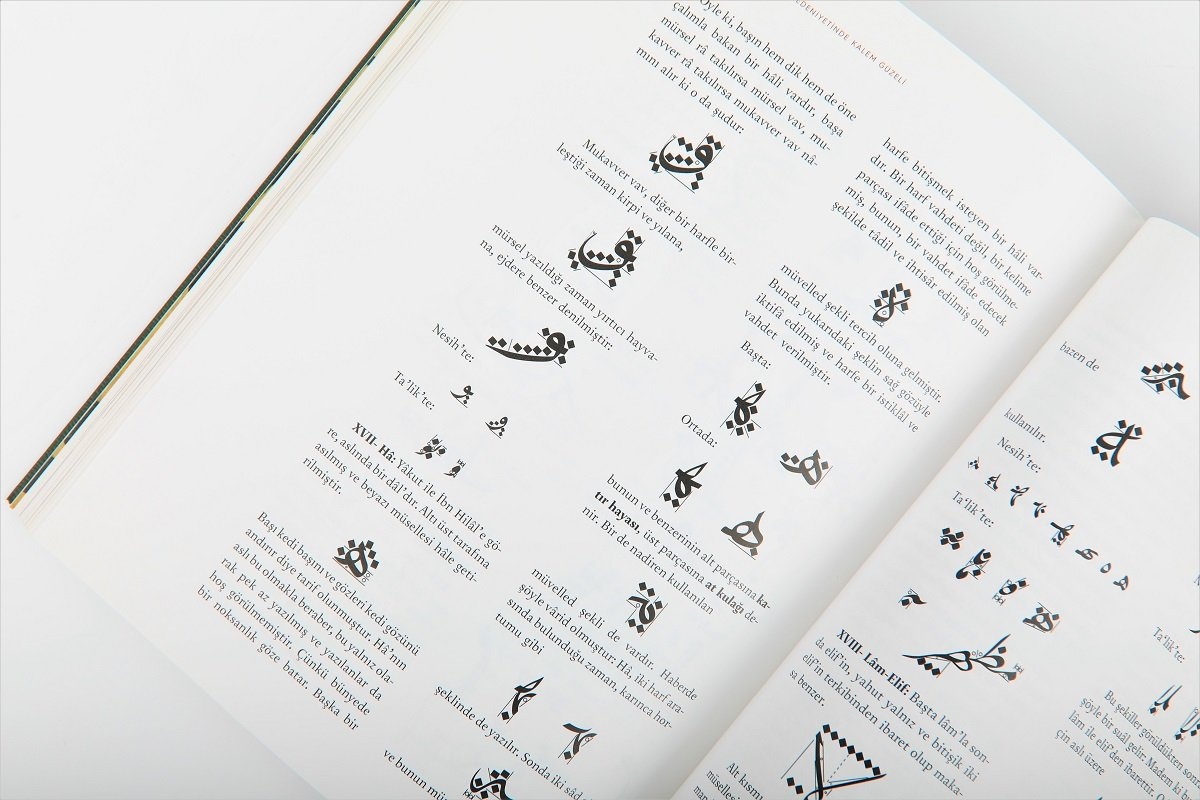 KALEM GÜZELİ
Öyle ki, başın hem dik hem de öne
çalımla bakan bir hâli vardır, başa
mürsel râ takılırsa mürsel vav, mu-
kavver râ takılırsa mukavver vav nâ-
mını alır ki o da şudur:
Mukavver vav, diğer bir harfle bir-
leştiği zaman kirpi ve yılana,
mürsel yazıldığı zaman yırtıcı hayva-
na, ejdere benzer denilmiştir:
Nesih'te:
Ta'lik'te:
XVII- Hâ: Yâkut ile İbn Hilâl'e gö-
re, aslında bir dâl'dır. Altı üst tarafına
asılmış ve beyazı müsellesi hâle geti-
rilmiştir.
Başı kedi başını ve gözleri kedi gözünü
andırır diye tarif olunmuştur. Hâ'nın
aslı bu olmakla beraber, bu yalnız ola-
rak pek az yazılmış ve yazılanlar da
hoş görülmemiştir. Çünkü bünyede
bir noksanlık göze batar. Başka bir
harfe bitişmek isteyen bir hâli var-
dır. Bir harf vahdeti değil, bir kelime
parçası ifâde ettiği için hoş görülme-
miş, bunun, bir vahdet ifâde edecek
şekilde tâdil ve ihtisâr edilmiş olan
müvelled şekli tercih oluna gelmiştir.
Bunda yukarıdaki şeklin sağ gözüyle
iktifâ edilmiş ve harfe bir istiklâl ve
vahdet verilmiştir.
Başta:
Ortada:
bunun ve benzerinin alt parçasına ka-
tır hayası, üst parçasına at kulağı de-
nir. Bir de nadiren kullanılan
müvelled şekli de vardır. Haberde
şöyle vârid olmuştur: Hâ, iki harf ara-
sında bulunduğu zaman, karınca hor-
tumu gibi
şeklinde de yazılır. Sonda iki sâd
ve bunun
bazen de
kullanılır.
Nesih'te:
Ta'lik'te:
XVIII- Lâm-Elif: Başta lâm'la son-
da elif'in, yahut yalnız ve bitişik iki
elif'in terkibinden ibaret olup maka-
sa benzer.
Alt kısmı
Ta'lik'te:
Bu şekiller görüldükten
şöyle bir suâl gelir. Madem ki
lâm ile elif'den ibarettir.
çin aslı üzere